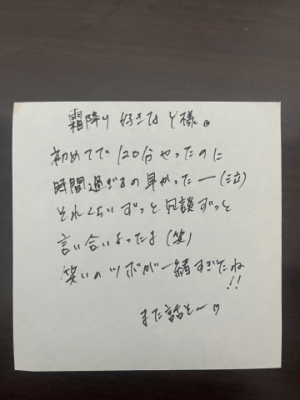 霜降り好きなY様。
初めてで120分やったのに
時間過ぎるの早かったー(泣)
それくらいずっと冗談ずっと
言い合いよったよ(笑)
笑いのツボが一緒すぎたね!!
また話そ〜♡